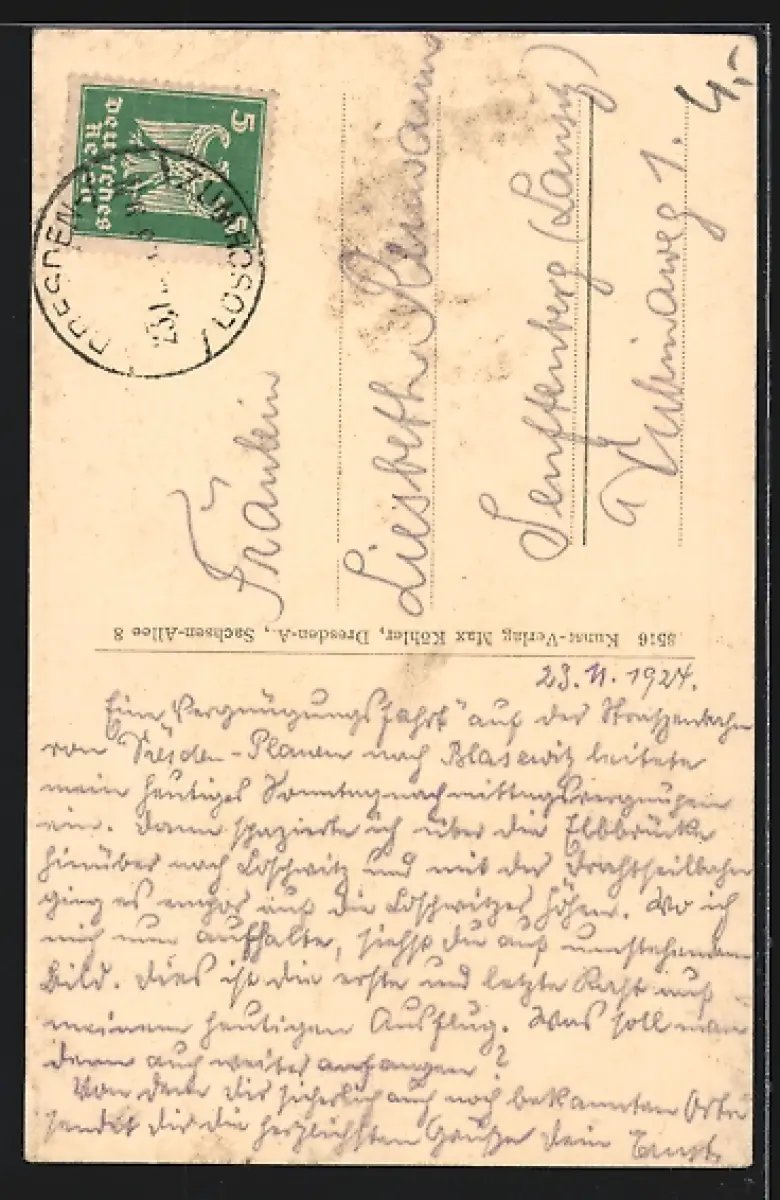 5
Deutsches
Reich
DRESDEN-
LOSCHWITZ
23.11.
4,-
Fräulein
Liesbeth
Senftenberg (Lausitz)
1.
3516 Kunst-Verlag Max Köhler, Dresden-A., Sachsen-Allee 8
23.11.1924.
Eine "Vergnügungsfahrt" auf der Straßenbahn
von Dresden-Plauen nach Blasewitz leitete
mein heutiges Sonntagnachmittagsvergnügen
ein. Dann spazierte ich über die Elbbrücke
hinüber nach Loschwitz und mit der Drahtseilbahn
ging es empor auf die Loschwitzer Höhen. Wo ich
mich nun aufhalte, siehst du auf umstehendem
Bild. Dies ist die erste und letzte Rast auf
meinem heutigen Ausflug. Was soll man
denn auch weiter anfangen?
Von dem dir sicherlich auch noch bekannten Orte
sendet dir die herzlichsten Grüße dein Ernst